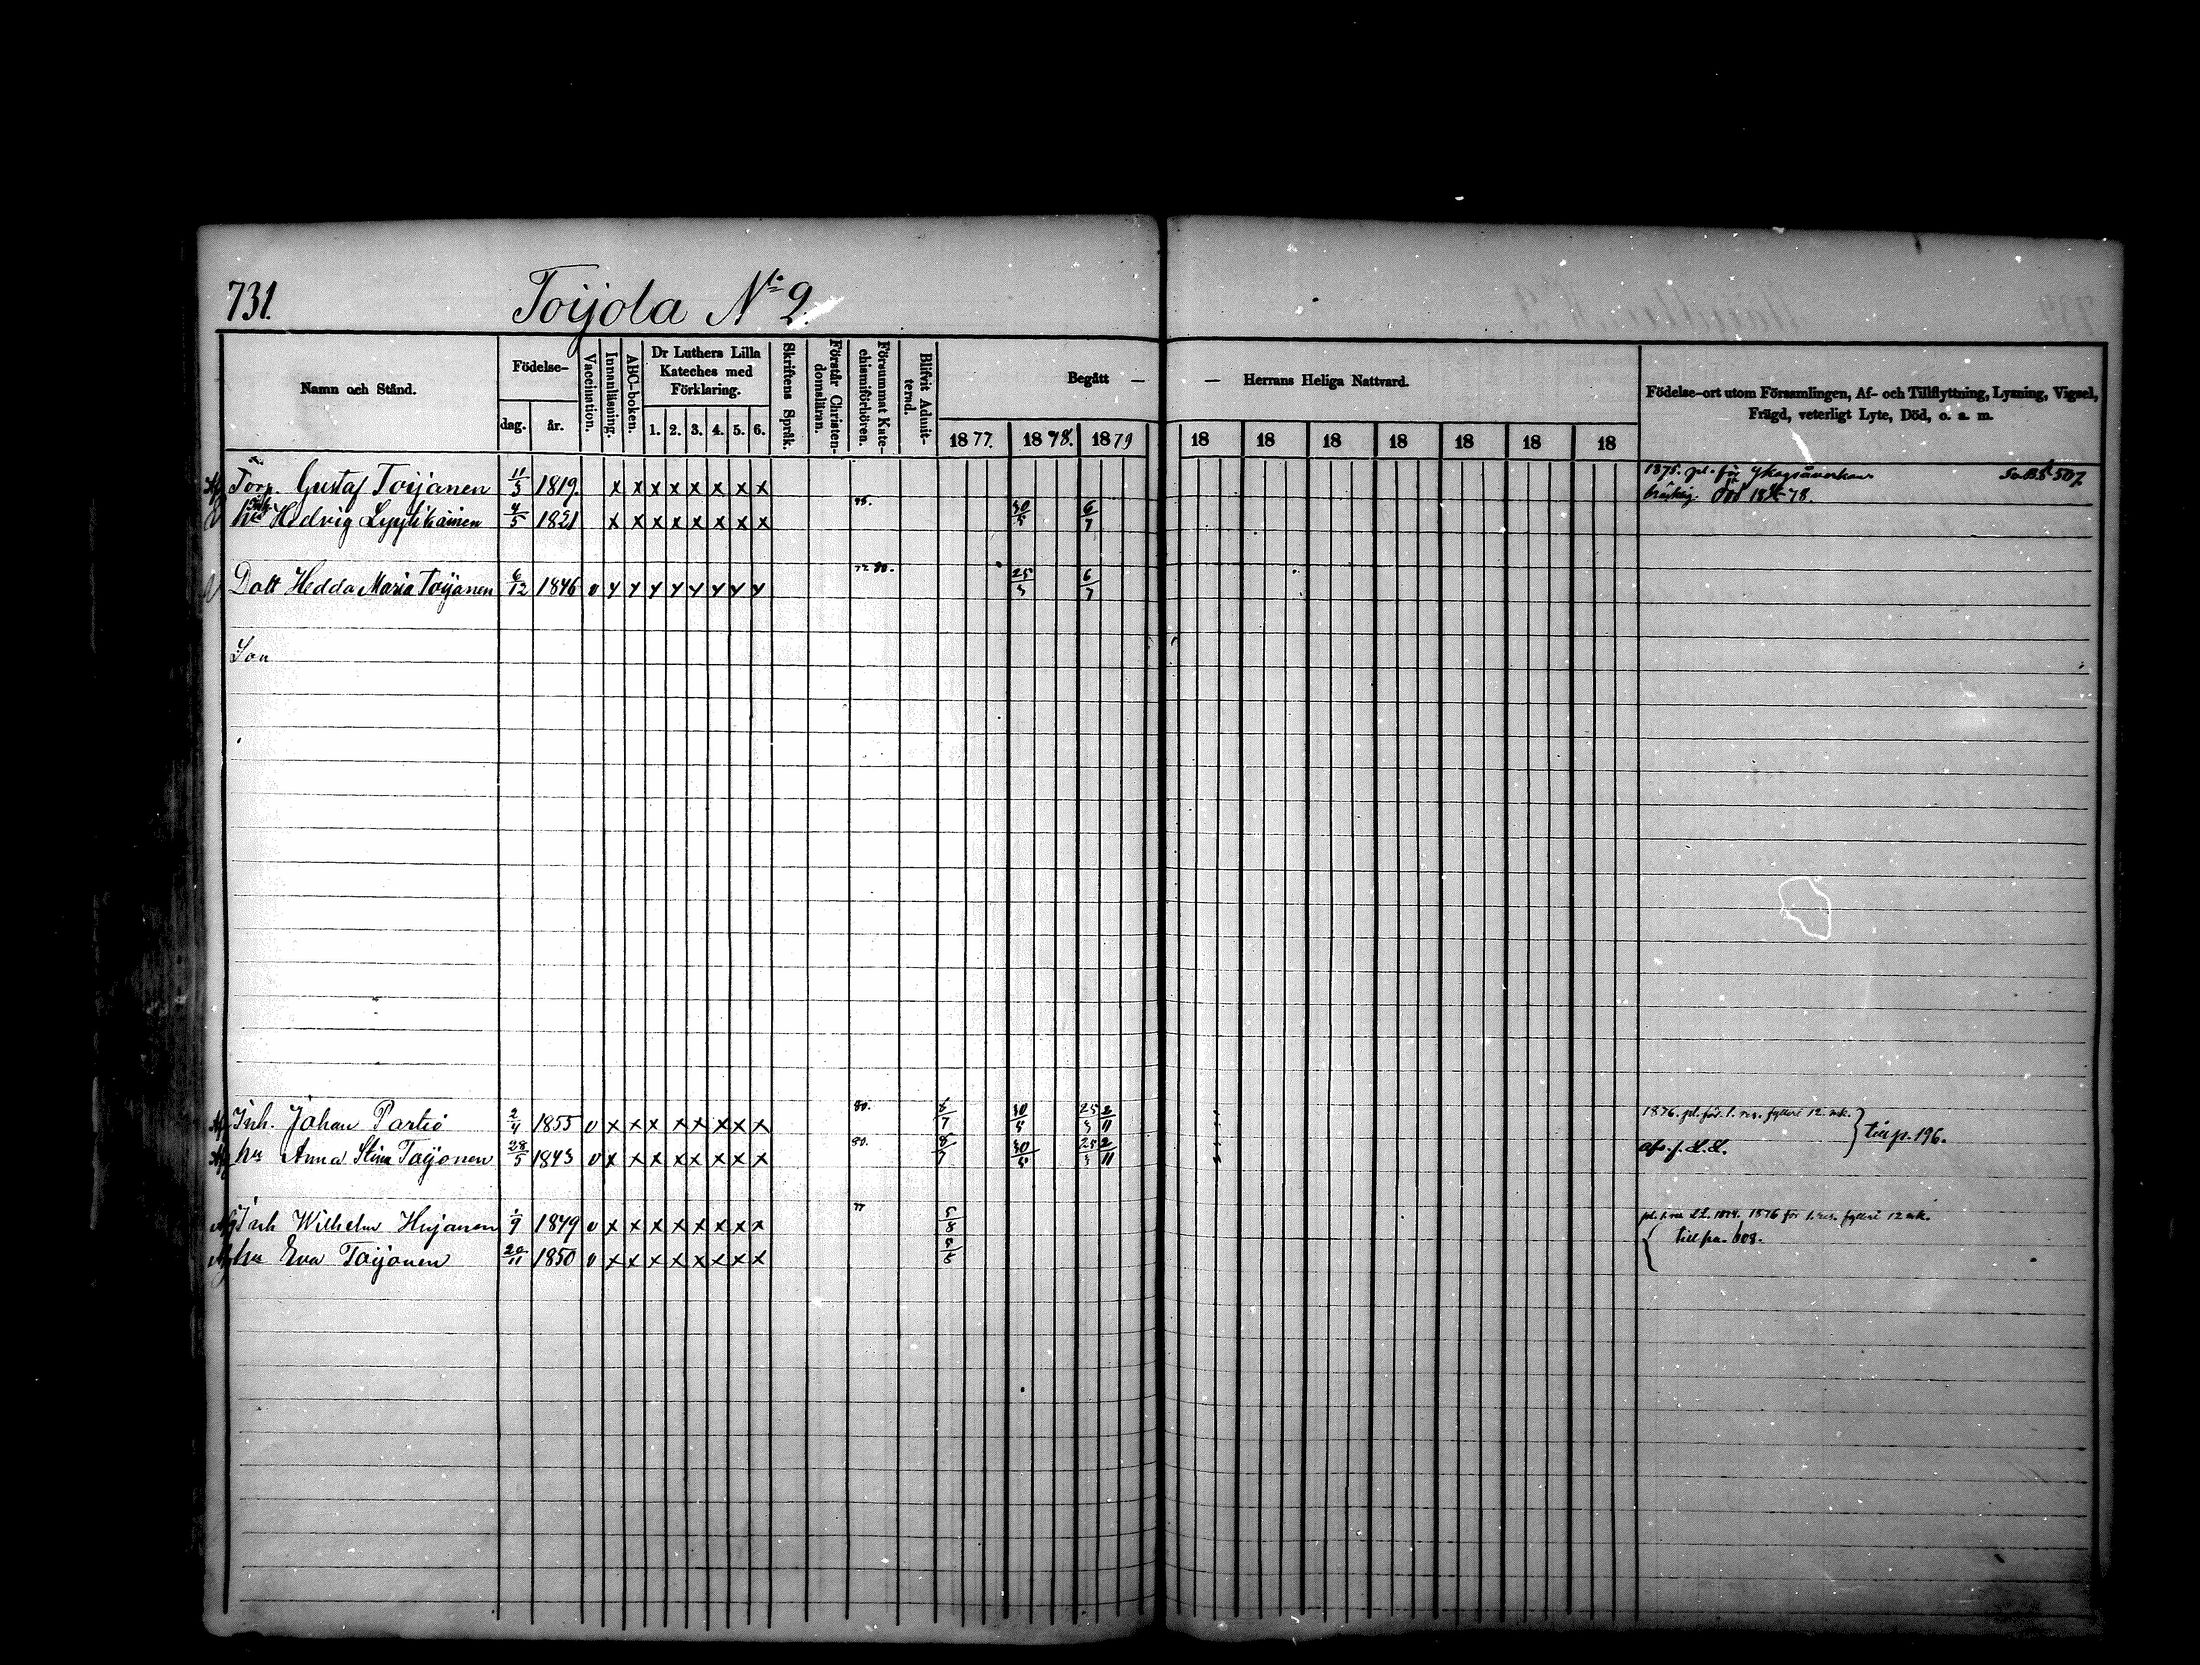 731. Toijola No 2.
Namn och Stånd. Födelse- dag. år. Vaccination. Innanläsning. ABC-boken. Dr Luthers Lilla Kateches med Förklaring. 1. 2. 3. 4. 5. 6. Skriftens Språk. Förstår Christendomsläran. Försummat Katechismiförhören. Blifvit Admitterad. Begått — — Herrans Heliga Nattvard. 1877. 1878. 1879 18 18 18 18 18 18 18 Födelse-ort utom Församlingen, Af- och Tillflyttning, Lysning, Vigsel, Frägd, veterligt Lyte, Död, o. s. m.
Torp. Gustaf Toijanen 11/3 1819. x x x x x x x x 1875. pl. för
död 78. 507
Hedvig Lyytikäinen 4/5 1821 x x x x x x x x 30/5 6/7
Dott Hedda Maria Toijanen 6/12 1846 v x x x x x x x x 80. 25/5 6/7
Son
Inh. Johan Partio 2/4 1855 v x x x x x x x x 80. 8/7 30/5 25/5 2/11 1876. pl. för 1. res. fylleri 12 mk. } till p. 196.
hu Anna Stina Toijonen 28/5 1843 v x x x x x x x x 80. 8/7 30/5 25/5 2/11
Inh Wilhelm Hujanen 1/9 1849 v x x x x x x x x 77 5/8 1876 för 1. res. fylleri 12 mk.
hu Eva Toijonen 20/11 1850 v x x x x x x x x 5/8 till pa. 608.